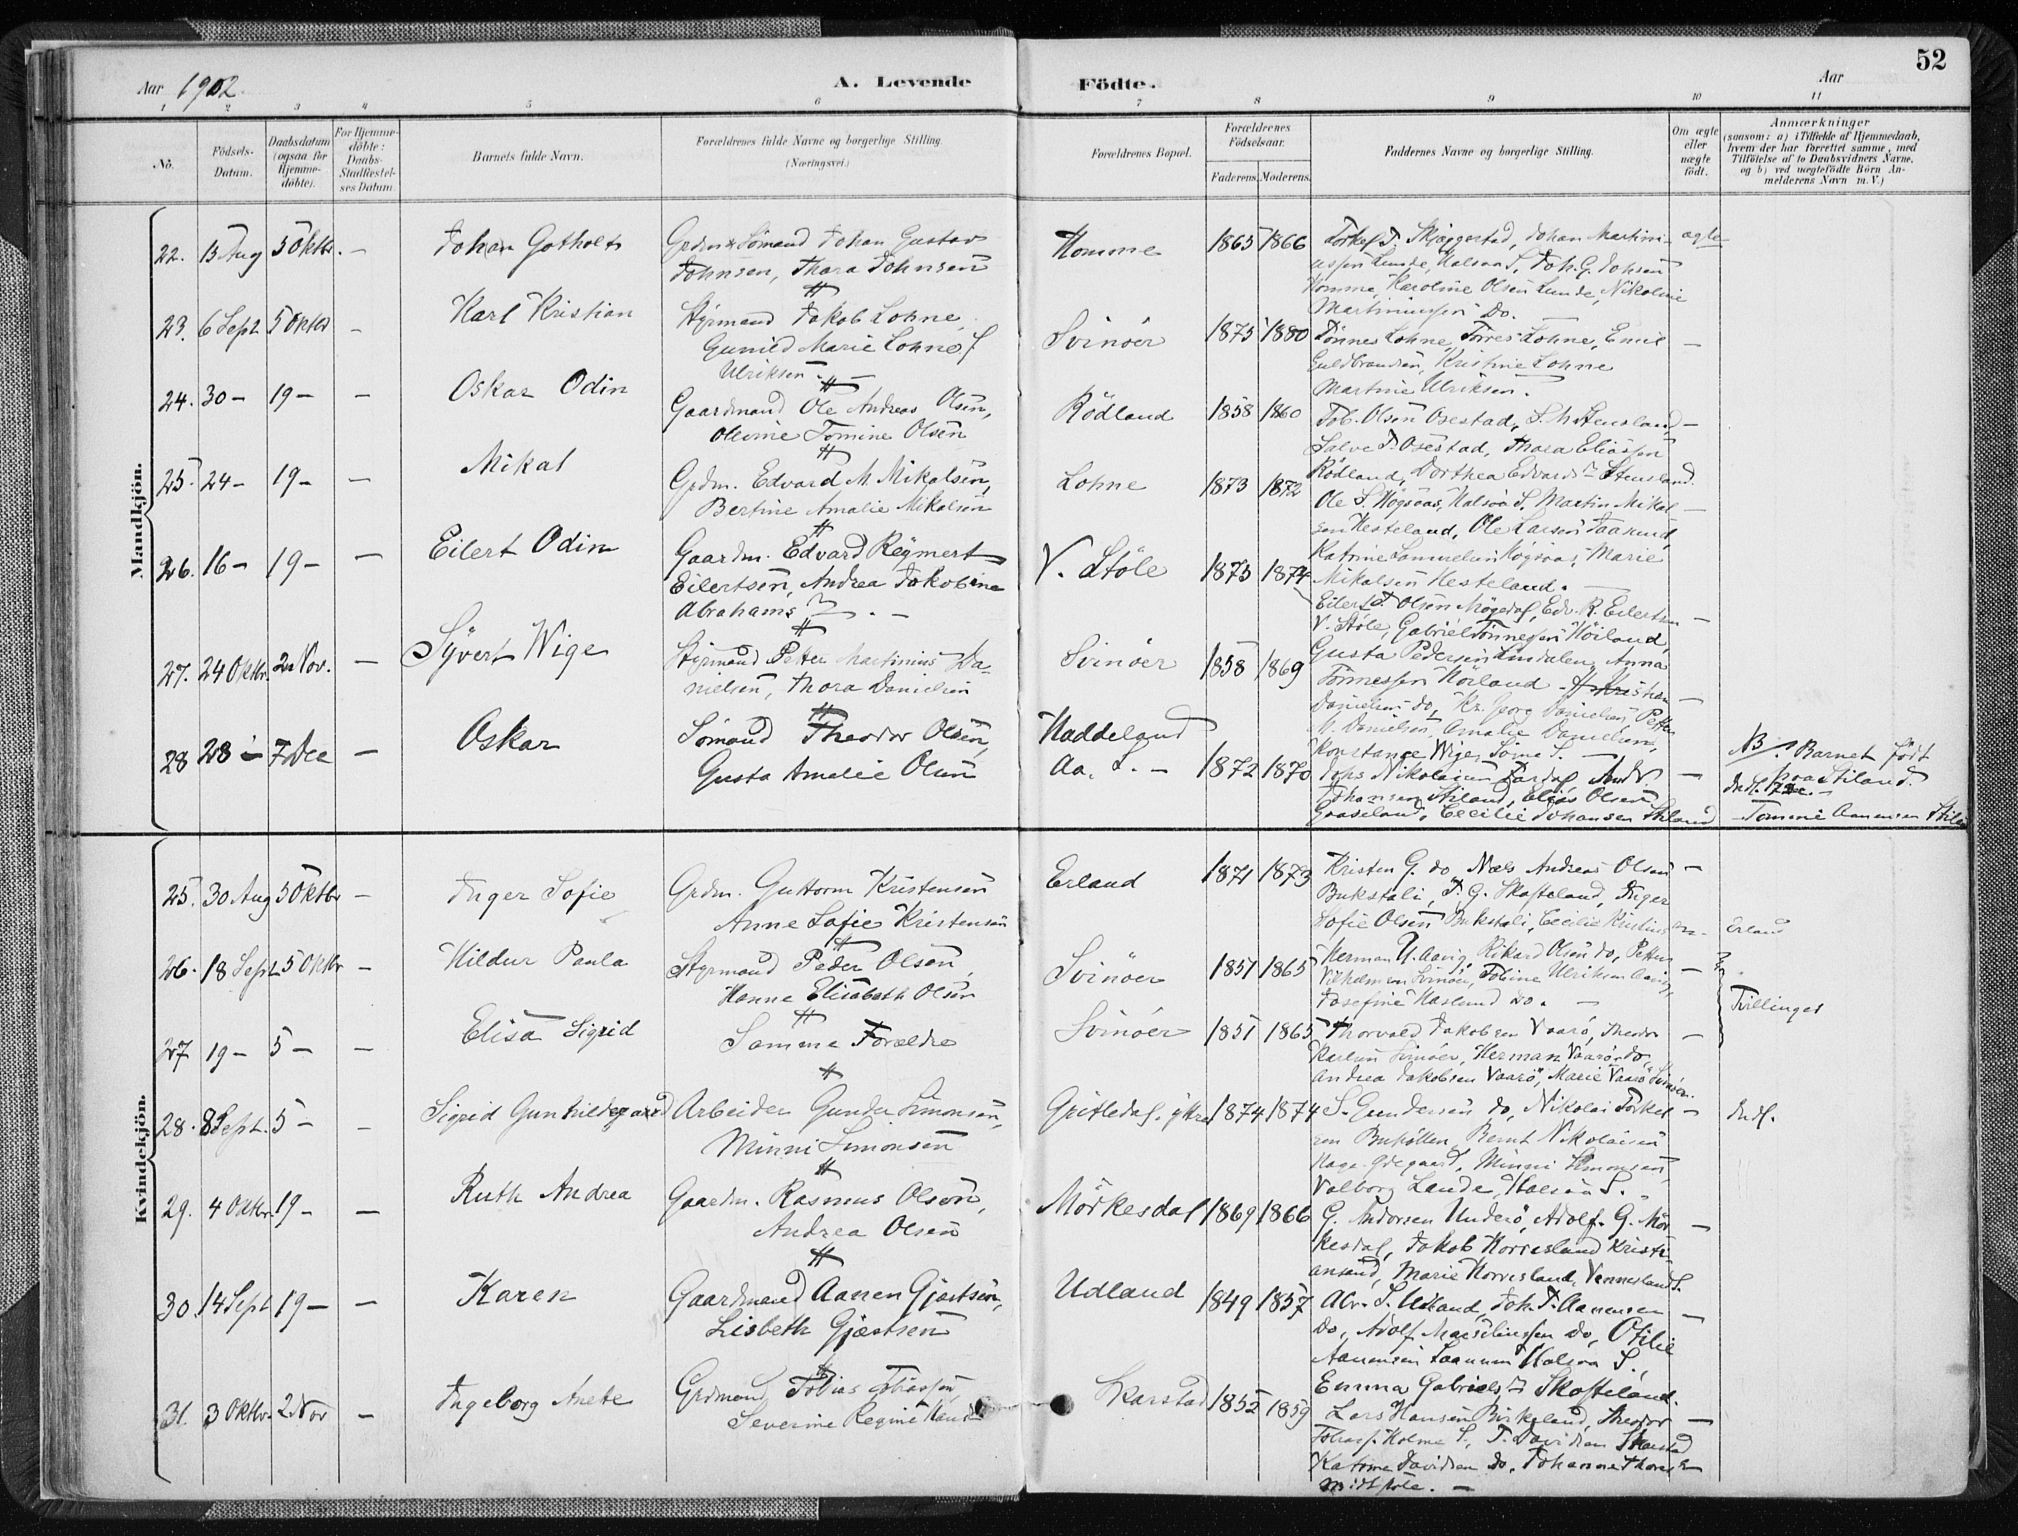 Aar 1902. A. Levende Födte. Aar 52
1 2 3 4 5 6 7 8 9 10 11
No.
Födsels-
Datum.
Daabsdatum
(ogsaa for
Hjemme-
döbte).
For Hjemme-
döbte:
Daabs-
Stadfæstel-
ses Datum.
Barnets fulde Navn.
Forældrenes fulde Navne og borgerlige Stilling.
(Næringsvei.)
Forældrenes Bopæl.
Forældrenes
Födselsaar.
Faderens. Moderens.
Faddernes Navne og borgerlige Stilling.
Om ægte
eller
uægte
födt.
Anmærkninger
(saasom: a) i Tilfælde af Hjemmedaab,
hvem der har forrettet samme, med
Tilföielse af to Daabsvidners Navne,
og b) ved uægtefödte Börn An-
melderens Navn m.V.)
Mandkjön.
22. 13 Aug 5 Oktbr. – Johan Gotholt
Grdm & Sömand Johan Gustav
Johnsen, Thora Johnsen
Homme 1865 1866
Skjæggestad, Johan Martini-
ussen Lunde, Halsaa S, Joh. G. Johnsen
Homme, Karoline Olsen Lunde, Nikoline
Martiniussen Do.
ægte
23. 6 Sept. 5 Oktbr – Karl Kristian
Styrmand Jakob Lohne,
Gunild Marie Lohne f.
Ulriksen. –
Svinöer 1875 1880
Tönnes Lohne, Torres Lohne, Emil
Guldbrandsen, Kristine Lohne
Martine Ulriksen.
–
24. 30 – 19 – – Oskar Odin
Gaardmand Ole Andreas Olsen,
Olevine Tomine Olsen
Rödland 1858 1860
Tob. Olsen Osestad, S. Stensland
Salve T. Osestad, Thora Eliassen
Rödland, Dorthea Edvards Stensland.
–
25. 24 – 19 – – Mikal
Grdm. Edvard M. Mikalsen,
Bertine Amalie Mikalsen
Lohne 1873 1872
Ole S. Högsaas, Halsaa S, Martin Mikal-
sen Hesteland, Ole Larsen
Katrine Samuelsen Högsaas, Marie
Mikalsen Hesteland. –
–
26. 16 – 19 – – Eilert Odin
Gaardm. Edvard Reymert
Eilertsen, Andrea Jakobine
Abrahams
V. Stöle 1873 1874
Eilert T. Olsen Edv. R. Eilertsen
V. Stöle, Gabriel Tönnessen Höiland,
Gusta Pedersen Lindalen, Anna
Tönnessen Höiland –
–
27. 24 Oktbr. 2 Nov. – Syvert Wige
Styrmand Petter Martinius Da-
nielsen, Thora Danielsen
Svinöer 1858 1869
Kristian
Danielsen do, Kr. Georg Danielsen, Petter
M. Danielsen, Amalie Danielsen,
Konstance Wige,
–
28 28 – 7 Dec – Oskar
Sömand Theodor Olsen,
Gusta Amalie Olsen
Haddeland
Aa. S. – 1872 1870
Nikolaisen
Johansen Stiland, Elias Olsen
Graaseland, Cecilie Johansen Stiland
–
NB/. Barnet født
paa Stiland.
Indl.
– Tomine Aanensen
Kvindekjön.
25. 30 Aug 5 Oktbr – Inger Sofie
Grdm. Guttorm Kristensen
Anne Sofie Kristensen
Erland 1871 1873
Kristen G. do, Næs Andreas Olsen
Bukstali, T. G. Skofteland, Inger
Sofie Olsen Bukstali, Cecilie
–
Erland
26. 18 Sept. 5 Oktbr – Hildur Paula
Styrmand Peder Olsen,
Hanne Elisabeth Olsen
Svinöer 1851 1865
Herman U. Aavig, Rikard Olsen do, Petter
Vilhelmsen Svinöer, Tobine Ulriksen Aavig,
Josefine Haslund do. –
–
Tvillinger
27 19 – 5 – – Elisa Sigrid
Samme Forældre
Svinöer 1851 1865
Thorvald Jakobsen Vaarö, Theodor
Karlsen Svinöer, Herman Vaarö do,
Andrea Jakobsen Vaarö, Marie Vaarö Svinöer.
–
28. 8 Sept. 5 – – Sigrid Gunhildegard
Arbeider Gunder Simonsen,
Minni Simonsen
Gritledal, 1874 1874
S. Gundersen do, Nikolai Torkel-
sen Bernt Nikolaisen
Ödegaard, Minni Simonsen,
Valborg Lande, Halsaa S.
–
Indl.
29. 4 Oktbr 19 – – Ruth Andrea
Gaardm. Rasmus Olsen,
Andrea Olsen
Mörkesdal 1869 1866
G. Andersen Underö, Adolf G. Mör-
kesdal, Jakob Horresland Kristi-
ansand, Marie Horresland, Vennesland S.
–
30. 14 Sept 19 – – Karen
Gaardmand Aanen Gjertsen,
Lisbeth Gjertsen
Udland 1849 1857
Abr. S. Udland, Joh. T. Aanensen
do, Adolf do, Otilie
Aanensen Halsaa S.
Emma Gabriels Skofteland.
–
31. 3 Oktbr. 2 Nov – Ingeborg Anete
Grdmand Tobias Tobiassen,
Severine Regine
Skarstad 1852 1859
Lars Hansen Birkeland, Theodor
Holme S., T. Davidsen Skarstad
Katrine Davidsen do, Johanne
Midtböe. –
–